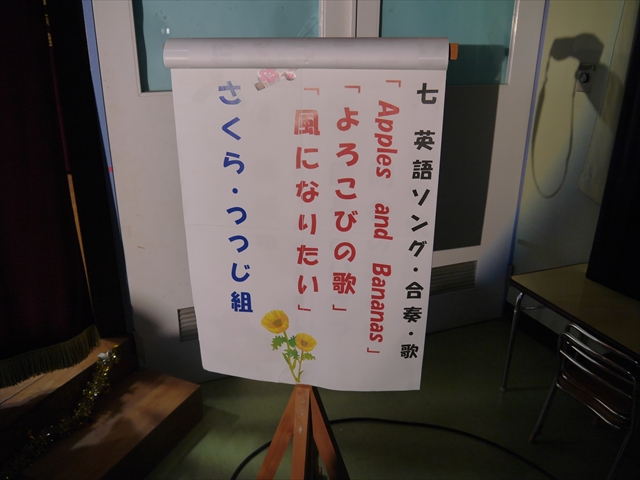 七 英語ソング・合奏・歌
「Apples and Bananas」
「よろこびの歌」
「風になりたい」
さくら・つつじ組